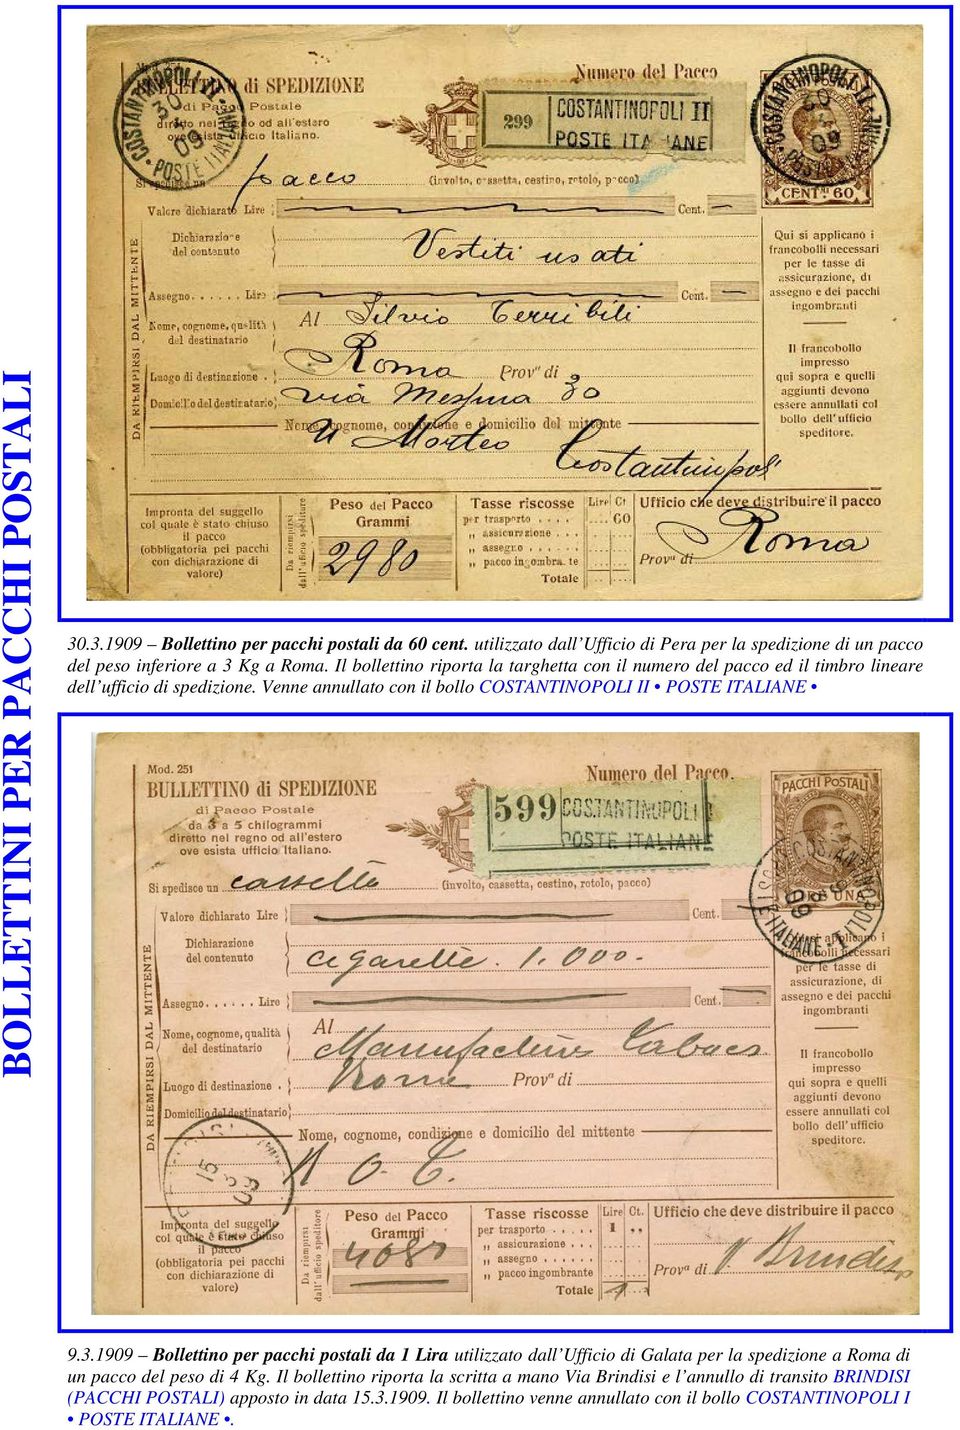 BOLLETTINI PER PACCHI POSTALI
COSTANTINOPOLI II
30
09
POSTE ITALIANE
BULLETTINO di SPEDIZIONE
di Pacco Postale
diretto nel regno od all'estero
ove esista ufficio Italiano.
Numero del Pacco
299
COSTANTINOPOLI II
POSTE ITA IANE
CENT.MI 60
Si spedisce un pacco (involto, cassetta, cestino, rotolo, pacco)
Valore dichiarato Lire Cent.
DA RIEMPIRSI DAL MITTENTE
Dichiarazione
del contenuto
Vestiti usati
Assegno...... Lire Cent.
Nome, cognome, qualità
del destinatario
Al Silvio Terribili
Luogo di destinazione . Roma Prov.a di
Domicilio del destinatario via Messina 30
Nome, cognome, condizione e domicilio del mittente
Morteo Costantinopoli
Qui si applicano i
francobolli necessari
per le tasse di
assicurazione, di
assegno e dei pacchi
ingombranti
Il francobollo
impresso
qui sopra e quelli
aggiunti devono
essere annullati col
bollo dell'ufficio
speditore.
Impronta del suggello
col quale è stato chiuso
il pacco
(obbligatoria pei pacchi
con dichiarazione di
valore)
Da riempirsi
dall'ufficio speditore
Peso del Pacco
Grammi
2980
Tasse riscosse Lire Ct
per trasporto .... 60
„ assicurazione ...
„ assegno ......
„ pacco ingombrante
Totale
Ufficio che deve distribuire il pacco
Roma
Prov.a di
30.3.1909 – Bollettino per pacchi postali da 60 cent. utilizzato dall'Ufficio di Pera per la spedizione di un pacco
del peso inferiore a 3 Kg a Roma. Il bollettino riporta la targhetta con il numero del pacco ed il timbro lineare
dell'ufficio di spedizione. Venne annullato con il bollo COSTANTINOPOLI II • POSTE ITALIANE •
Mod. 251
BULLETTINO di SPEDIZIONE
di Pacco Postale
da 3 a 5 chilogrammi
diretto nel regno od all'estero
ove esista ufficio Italiano.
Numero del Pacco.
599
COSTANTINOPOLI
POSTE ITALIANE
PACCHI POSTALI
LIRE UNA
Si spedisce un cassetta (involto, cassetta, cestino, rotolo, pacco)
Valore dichiarato Lire Cent.
DA RIEMPIRSI DAL MITTENTE
Dichiarazione
del contenuto
cigarette. 1.000.
Assegno...... Lire Cent.
Nome, cognome, qualità
del destinatario
Al
Manufactures Tabacs
Luogo di destinazione . Rome Prov.a di
Domicilio del destinatario
Nome, cognome, condizione e domicilio del mittente
15
3
09
Qui si applicano i
francobolli necessari
per le tasse di
assicurazione, di
assegno e dei pacchi
ingombranti
Il francobollo
impresso
qui sopra e quelli
aggiunti devono
essere annullati col
bollo dell'ufficio
speditore.
Impronta del suggello
col quale è stato chiuso
il pacco
(obbligatoria pei pacchi
con dichiarazione di
valore)
Da riempirsi
dall'ufficio speditore
Peso del Pacco
Grammi
Tasse riscosse Lire Ct.
per trasporto ..... 1 „
„ assicurazione ...
„ assegno ......
„ pacco ingombrante
Totale 1
Ufficio che deve distribuire il pacco
V. Brindisi
Prov.a di
9.3.1909 – Bollettino per pacchi postali da 1 Lira utilizzato dall'Ufficio di Galata per la spedizione a Roma di
un pacco del peso di 4 Kg. Il bollettino riporta la scritta a mano Via Brindisi e l'annullo di transito BRINDISI
(PACCHI POSTALI) apposto in data 15.3.1909. Il bollettino venne annullato con il bollo COSTANTINOPOLI I
• POSTE ITALIANE •.